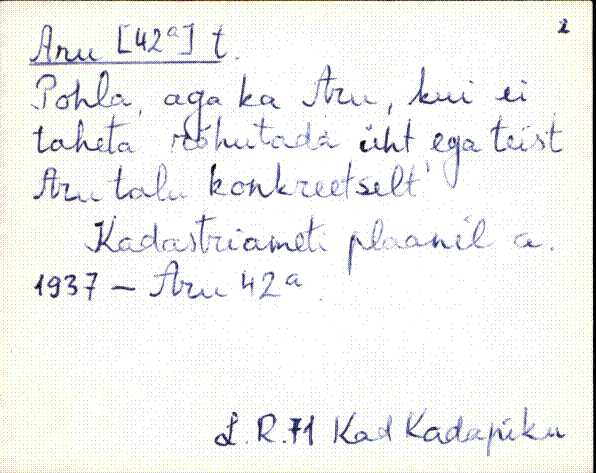 2
Aru [42a] t.
Pohla, aga ka Aru, kui ei
taheta rõhutada üht, ega teist
Aru talu konkreetselt.
Kadastriameti plaanil a.
1937 – Aru 42a.
L.R.71 Kad Kadapiku